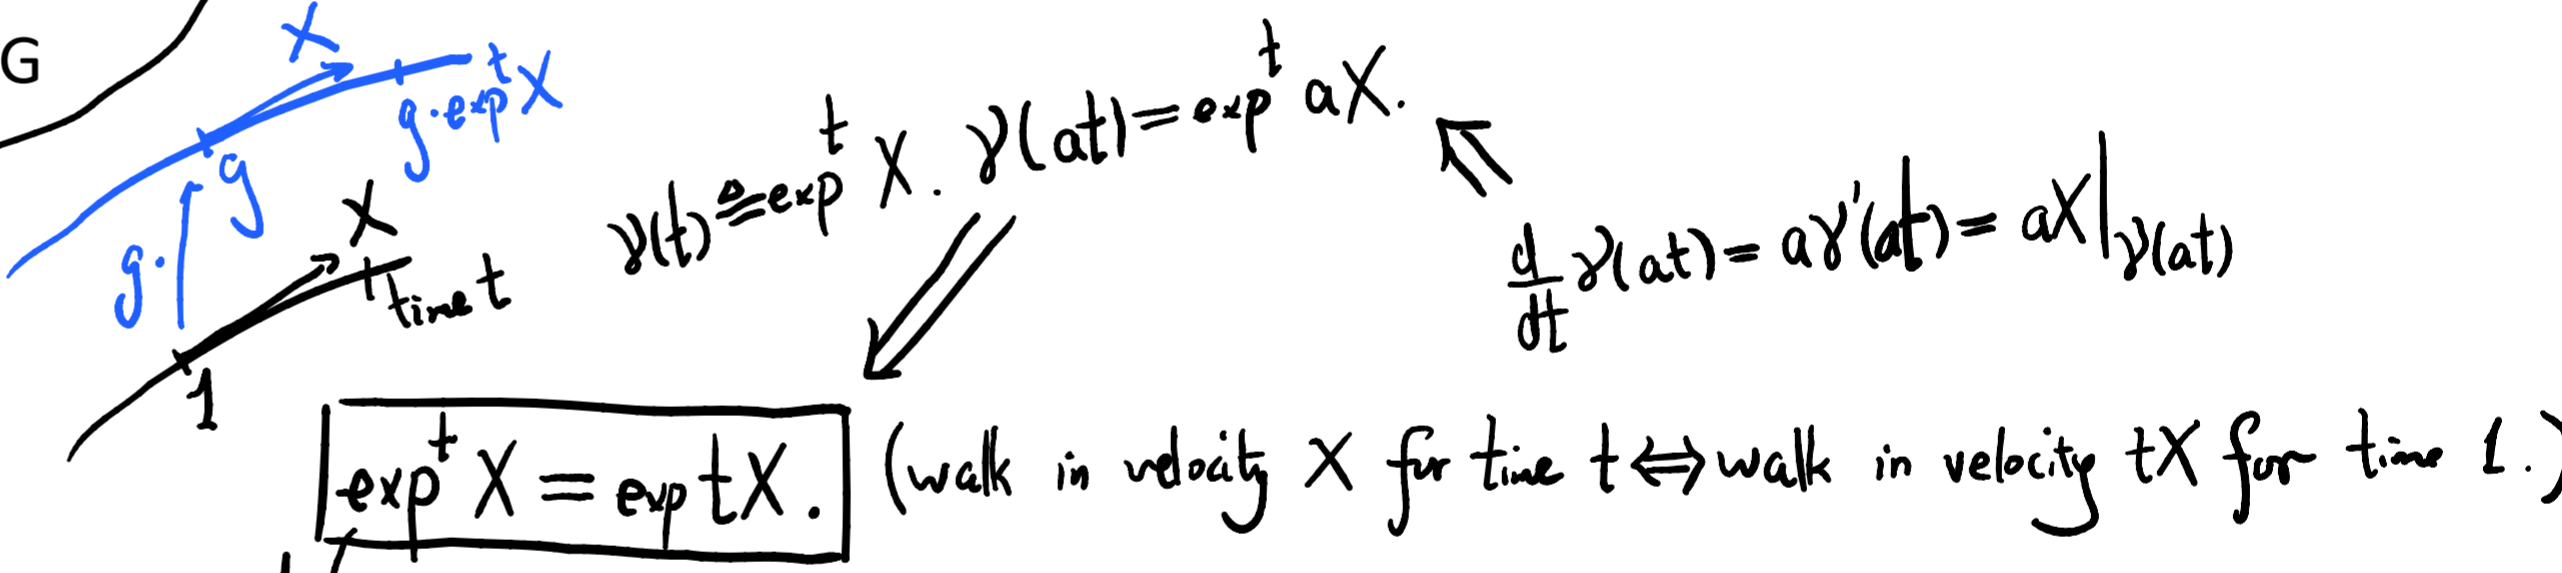 G
X
g·exp^t X
g
g·
X
time t
1
γ(t) ≜ exp^t X. γ(at) = exp^t aX.
d/dt γ(at) = aγ'(at) = aX|_γ(at)
exp^t X = exp tX. (walk in velocity X for time t ⟺ walk in velocity tX for time 1.)